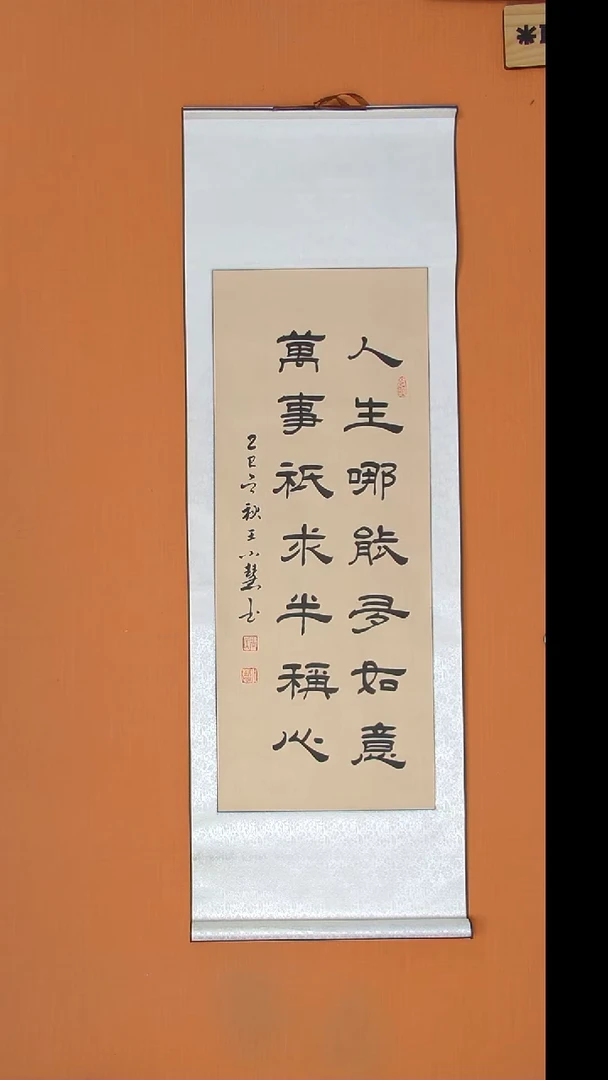 人生哪能多如意
萬事祇求半稱心
乙巳之秋王小慧书